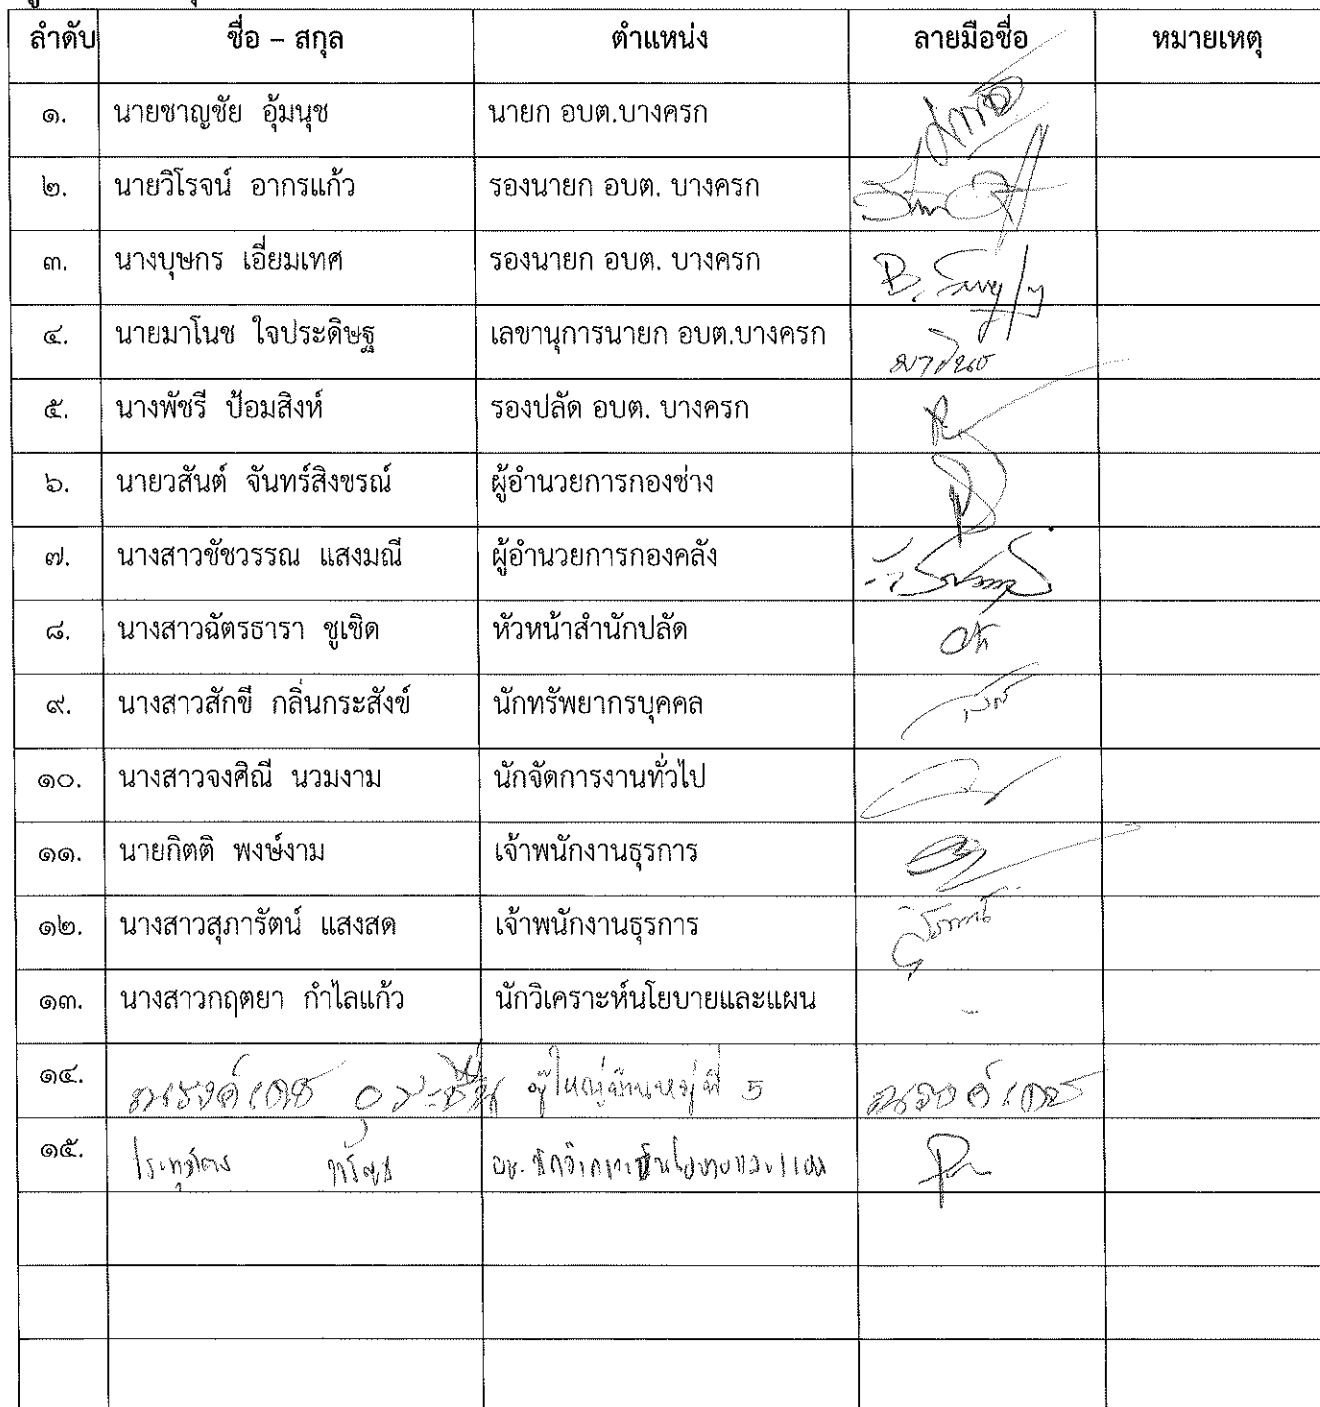 ลำดับ ชื่อ – สกุล ตำแหน่ง ลายมือชื่อ หมายเหตุ
๑. นายชาญชัย อุ้มนุช นายก อบต.บางครก
๒. นายวิโรจน์ อากรแก้ว รองนายก อบต. บางครก
๓. นางบุษกร เอี่ยมเทศ รองนายก อบต. บางครก
๔. นายมาโนช ใจประดิษฐ เลขานุการนายก อบต.บางครก มาโนช
๕. นางพัชรี ป้อมสิงห์ รองปลัด อบต. บางครก
๖. นายวสันต์ จันทร์สิงขรณ์ ผู้อำนวยการกองช่าง
๗. นางสาวชัชวรรณ แสงมณี ผู้อำนวยการกองคลัง
๘. นางสาวฉัตรธารา ชูเชิด หัวหน้าสำนักปลัด
๙. นางสาวสักขี กลิ่นกระสังข์ นักทรัพยากรบุคคล
๑๐. นางสาวจงศิณี นวมงาม นักจัดการงานทั่วไป
๑๑. นายกิตติ พงษ์งาม เจ้าพนักงานธุรการ
๑๒. นางสาวสุภารัตน์ แสงสด เจ้าพนักงานธุรการ
๑๓. นางสาวกฤตยา กำไลแก้ว นักวิเคราะห์นโยบายและแผน -
๑๔. ณรงค์เดช ผู้ใหญ่บ้านหมู่ที่ 5 ณรงค์เดช
๑๕. ผช.นักวิเคราะห์นโยบายและแผน